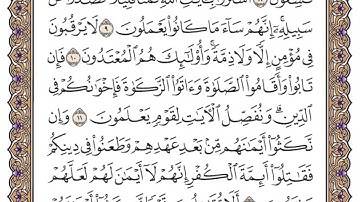 سَبِيلِهِۦٓۚ إِنَّهُمْ سَآءَ مَا كَانُوا۟ يَعْمَلُونَ ٩ لَا يَرْقُبُونَ
فِى مُؤْمِنٍ إِلًّا وَلَا ذِمَّةًۚ وَأُو۟لَٰٓئِكَ هُمُ ٱلْمُعْتَدُونَ ١٠ فَإِن
تَابُوا۟ وَأَقَامُوا۟ ٱلصَّلَوٰةَ وَءَاتَوُا۟ ٱلزَّكَوٰةَ فَإِخْوَٰنُكُمْ فِى
ٱلدِّينِۗ وَنُفَصِّلُ ٱلْءَايَٰتِ لِقَوْمٍ يَعْلَمُونَ ١١ وَإِن
نَّكَثُوٓا۟ أَيْمَٰنَهُم مِّنۢ بَعْدِ عَهْدِهِمْ وَطَعَنُوا۟ فِى دِينِكُمْ
فَقَٰتِلُوٓا۟ أَئِمَّةَ ٱلْكُفْرِۙ إِنَّهُمْ لَآ أَيْمَٰنَ لَهُمْ لَعَلَّهُمْ